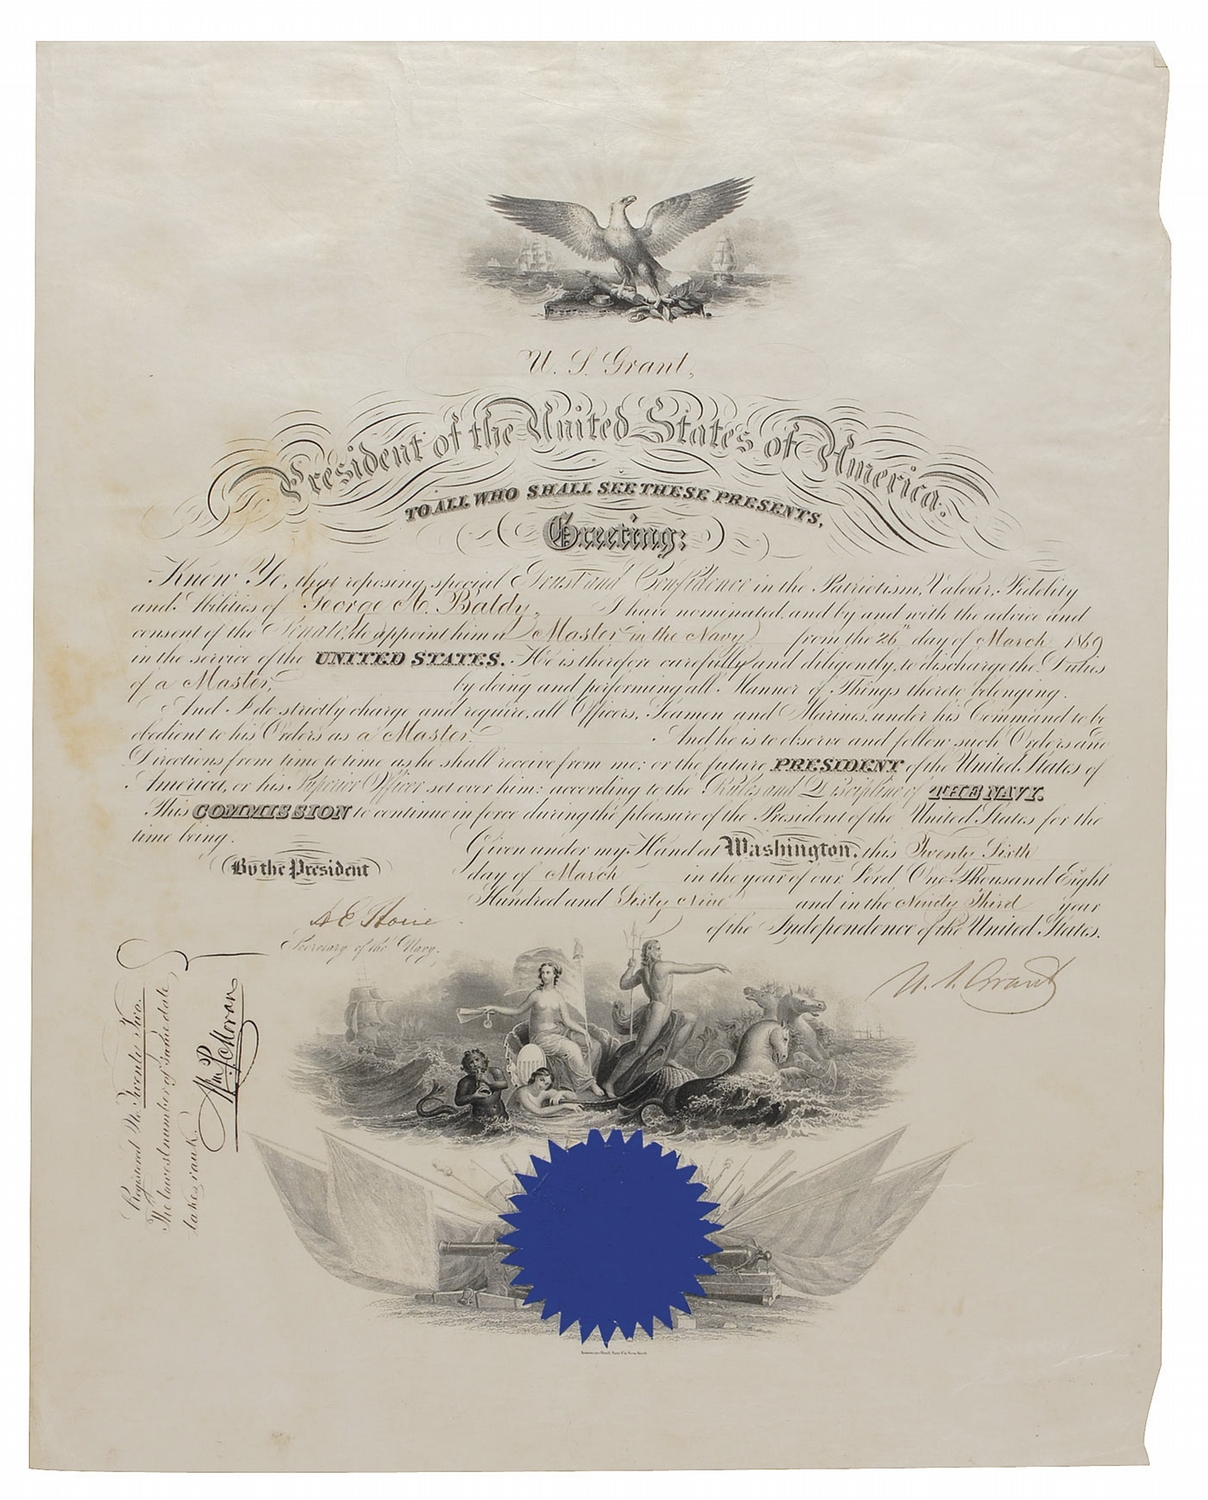 U. S. Grant,
President of the United States of America.
TO ALL WHO SHALL SEE THESE PRESENTS,
Greeting:
Know Ye, that reposing special Trust and Confidence in the Patriotism, Valour, Fidelity
and Abilities of George A. Baldy, I have nominated and by and with the advice and
consent of the Senate, do appoint him a Master in the Navy from the 26th day of March 1869
in the service of the UNITED STATES. He is therefore carefully and diligently, to discharge the Duties
of a Master, by doing and performing all Manner of Things thereto belonging.
And I do strictly charge and require, all Officers, Seamen and Marines, under his Command to be
obedient to his Orders as a Master. And he is to observe and follow such Orders and
Directions from time to time as he shall receive from me: or the future PRESIDENT of the United States of
America, or his Superior Officer set over him: according to the Rules and Discipline of THE NAVY.
This COMMISSION to continue in force during the pleasure of the President of the United States for the
time being.
Given under my Hand at Washington, this Twenty Sixth
By the President
day of March in the year of our Lord One Thousand Eight
Hundred and Sixty Nine and in the Ninety Third Year
of the Independence of the United States.
A E Borie
Secretary of the Navy.
U. S. Grant
Registered No Twenty Two.
The lowest number of same date
takes rank.
Wm P. Moran